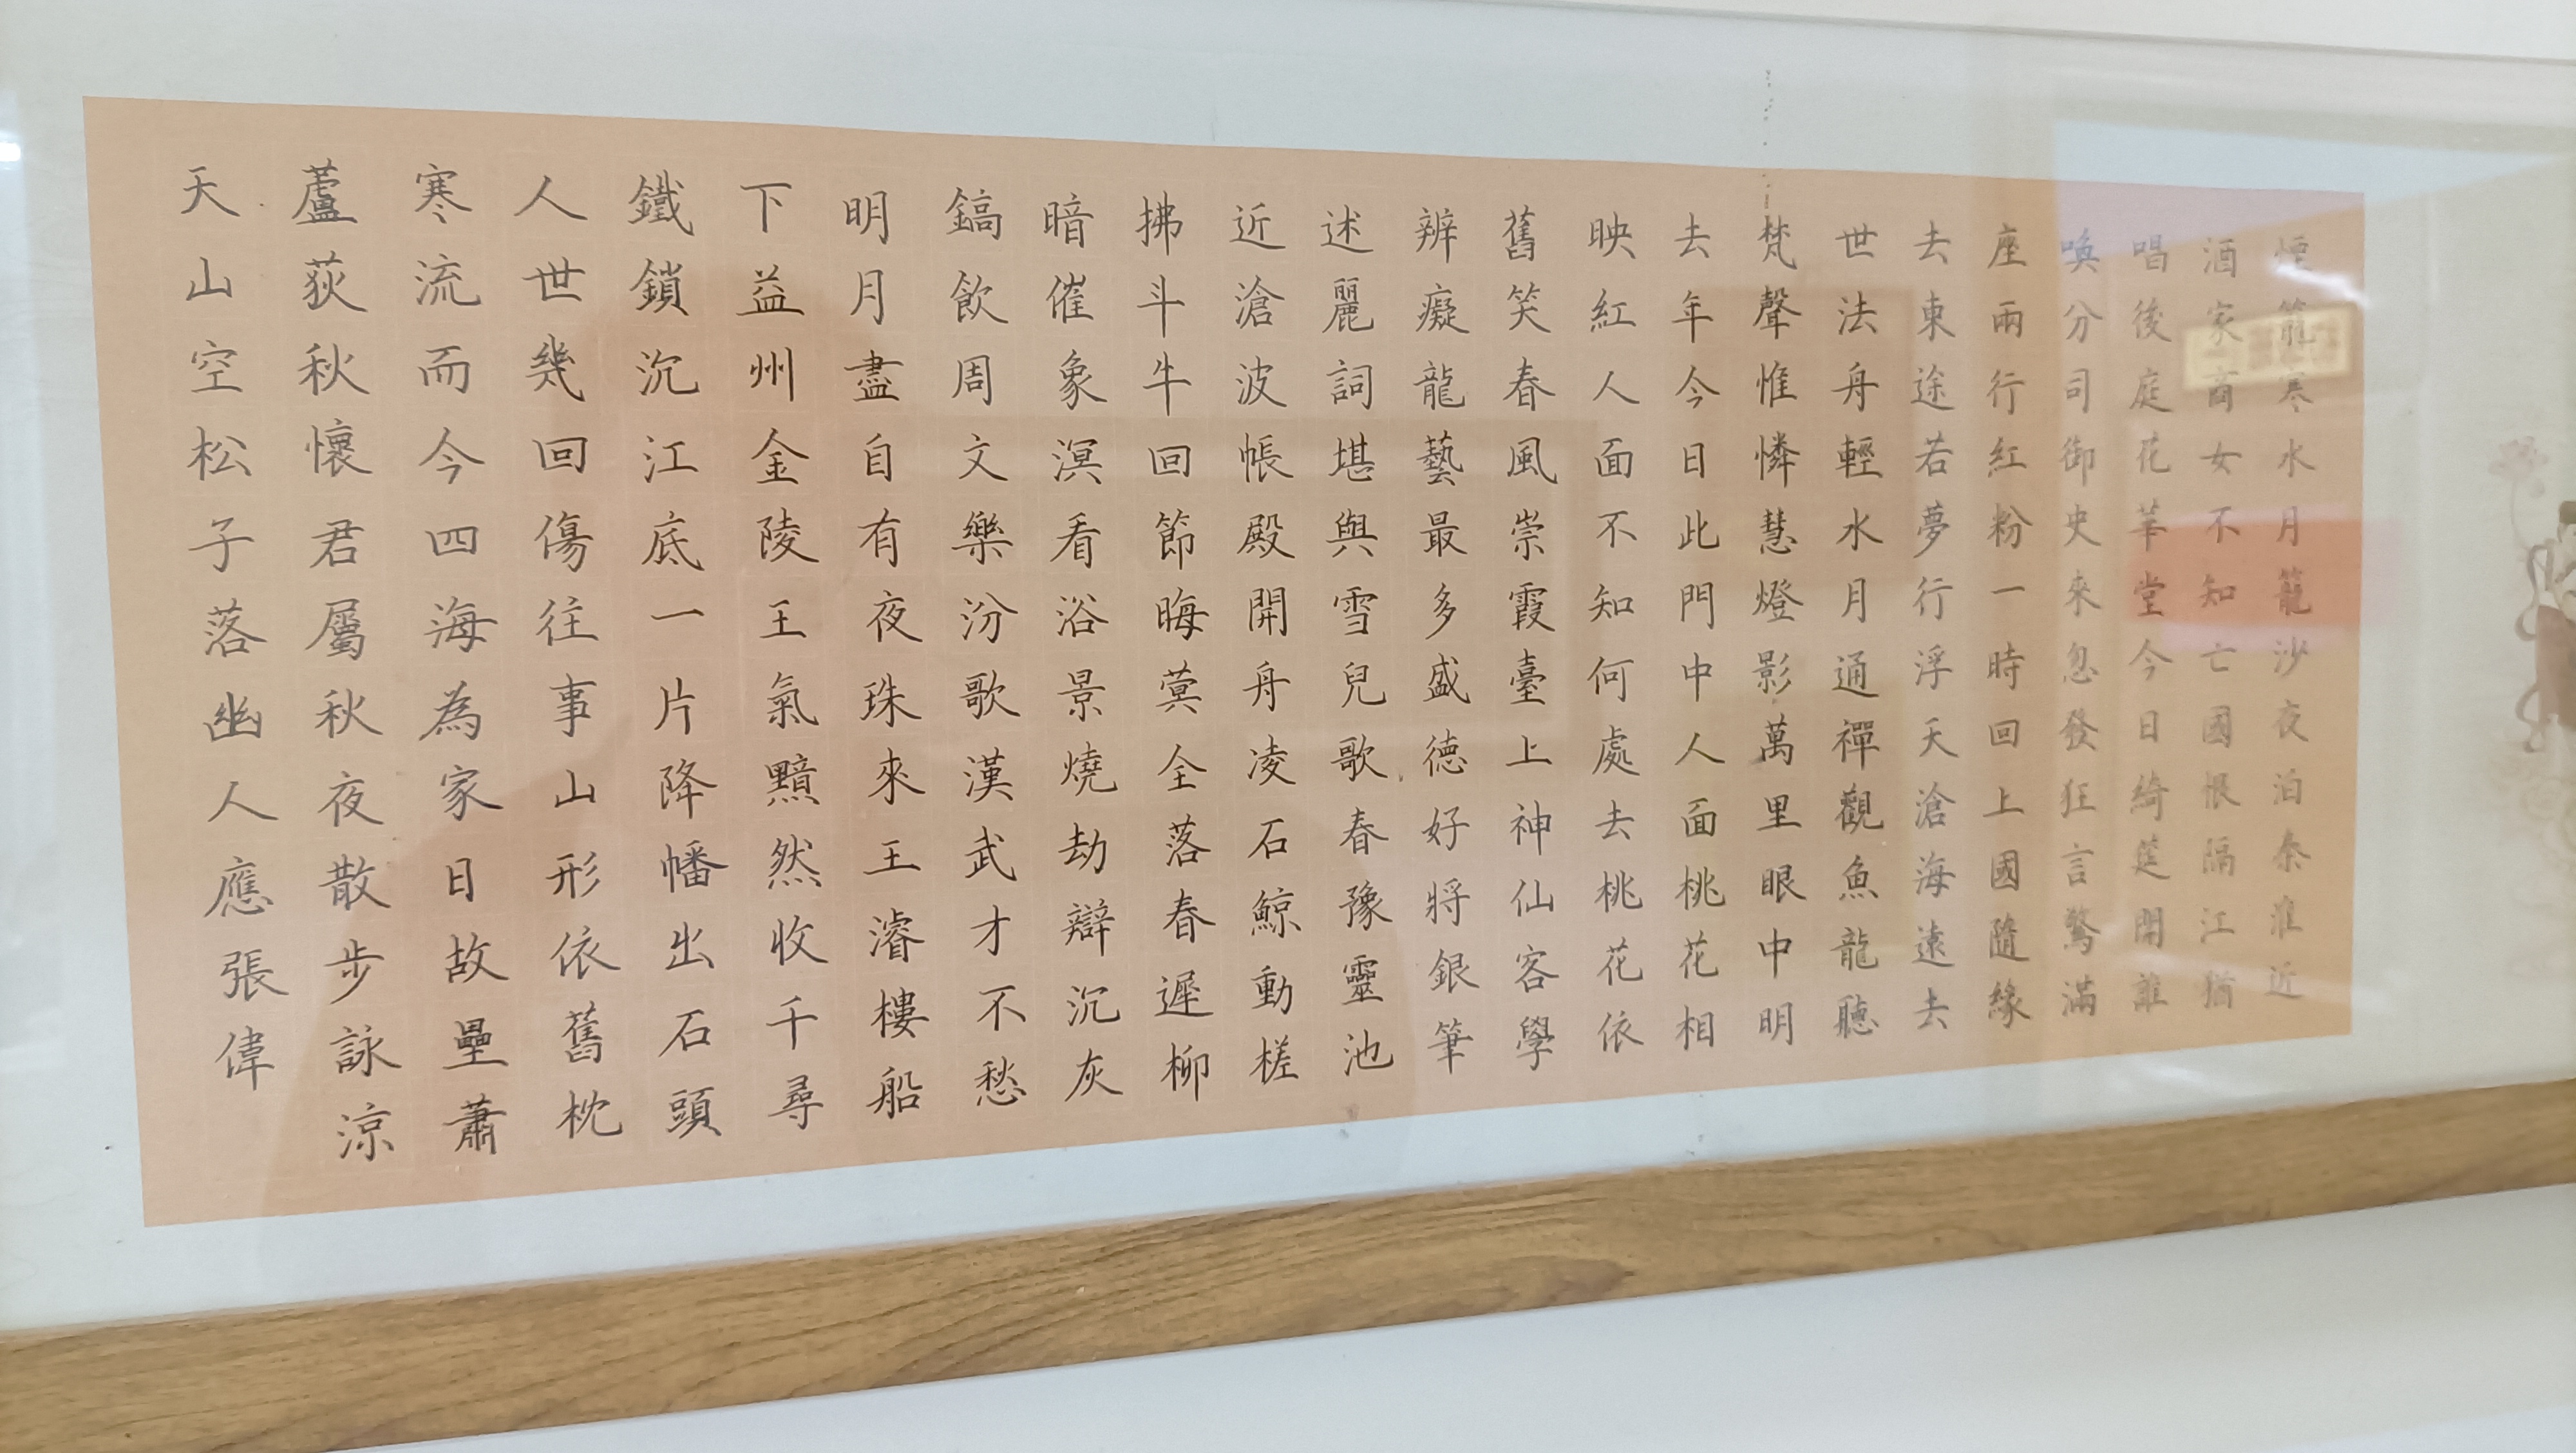 煙籠寒水月籠沙夜泊秦淮近
酒家商女不知亡國恨隔江猶
唱後庭花華堂今日綺筵開誰
喚分司御史來忽發狂言驚滿
座兩行紅粉一時回上國隨緣
去東途若夢行浮天滄海遠去
世法舟輕水月通禪觀魚龍聽
梵聲惟憐慧燈影萬里眼中明
去年今日此門中人面桃花相
映紅人面不知何處去桃花依
舊笑春風崇霞臺上神仙客學
辨癡龍藝最多盛德好將銀筆
述麗詞堪與雪兒歌春豫靈池
近滄波帳殿開舟凌石鯨動槎
拂斗牛回節晦蓂全落春遲柳
暗催象溟看浴景燒劫辯沉灰
鎬飲周文樂汾歌漢武才不愁
明月盡自有夜珠來王濬樓船
下益州金陵王氣黯然收千尋
鐵鎖沉江底一片降幡出石頭
人世幾回傷往事山形依舊枕
寒流而今四海為家日故壘蕭
蘆荻秋懷君屬秋夜散步詠涼
天山空松子落幽人應張偉